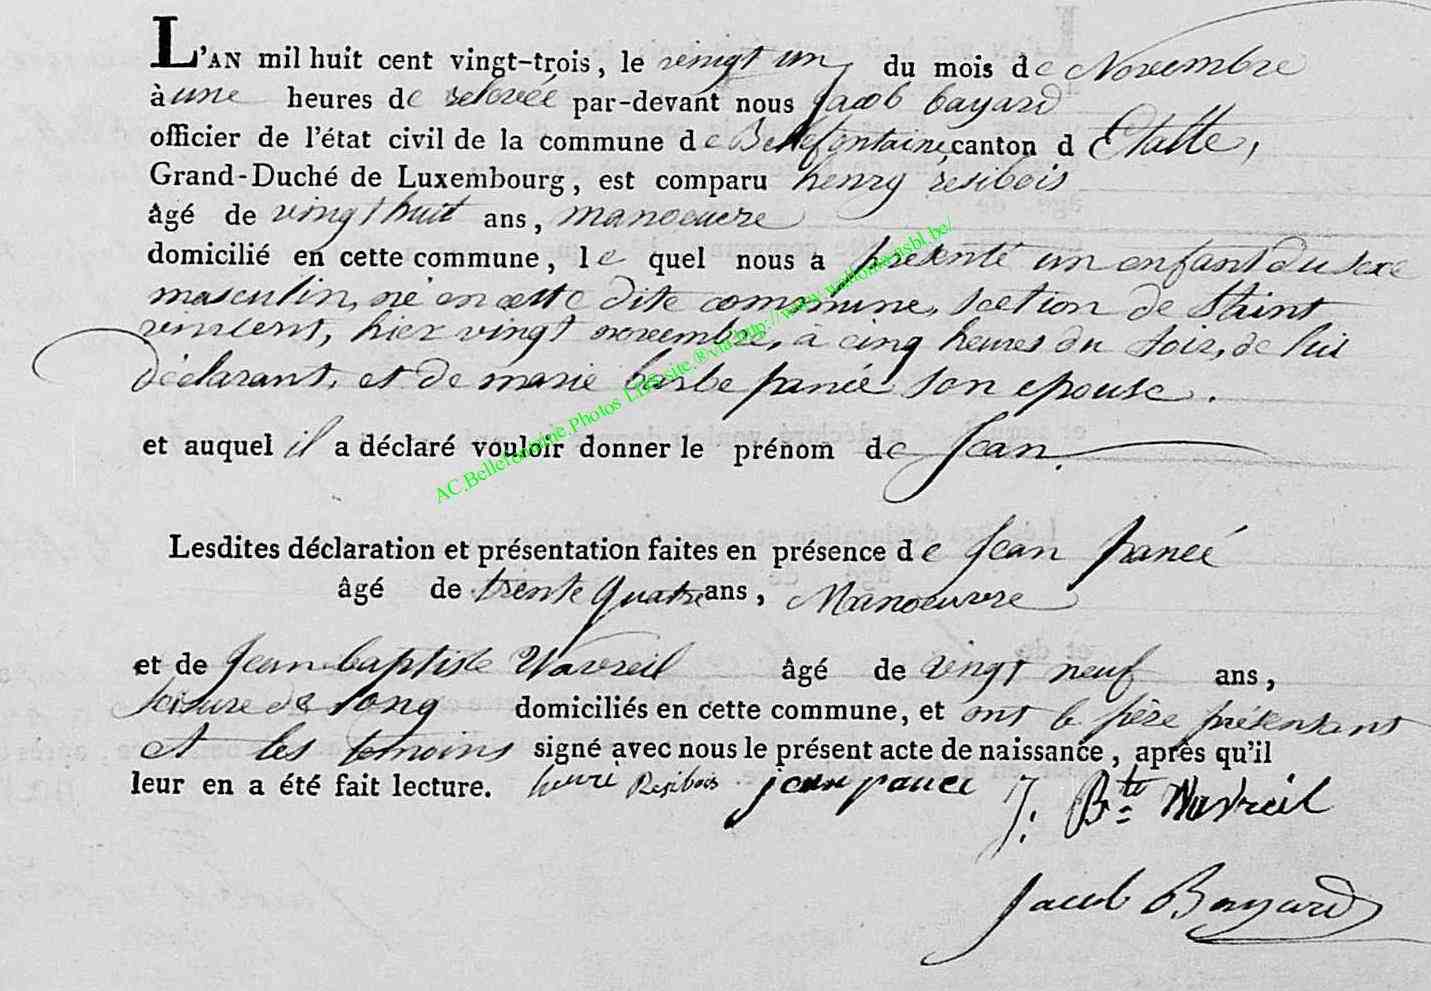 L'AN mil huit cent vingt-trois, le vingt un du mois de Novembre
à une heures de relevée par-devant nous Jacob bayard
officier de l'état civil de la commune de Bellefontaine, canton d Etalle,
Grand-Duché de Luxembourg, est comparu henry résibois
âgé de vingt huit ans, manoeuvre
domicilié en cette commune, le quel nous a présenté un enfant du sexe
masculin, né en cette dite commune, section de Saint
vincent, hier vingt novembre, à cinq heures du soir, de lui
déclarant, et de marie barbe pancé, son epouse.
et auquel il a déclaré vouloir donner le prénom de Jean.
AC.Bellefontaine.Photos LDS.site.®via http://www.wallonia.asbl.be/
Lesdites déclaration et présentation faites en présence de Jean pancé
âgé de trente quatre ans, Manoeuvre
et de Jean baptiste Wavreil âgé de vingt neuf ans,
de long domiciliés en cette commune, et ont le père présentant
et les temoins signé avec nous le présent acte de naissance, après qu'il
leur en a été fait lecture. henri Resibois jean pancé J: Bte Wavreil
Jacob Bayard